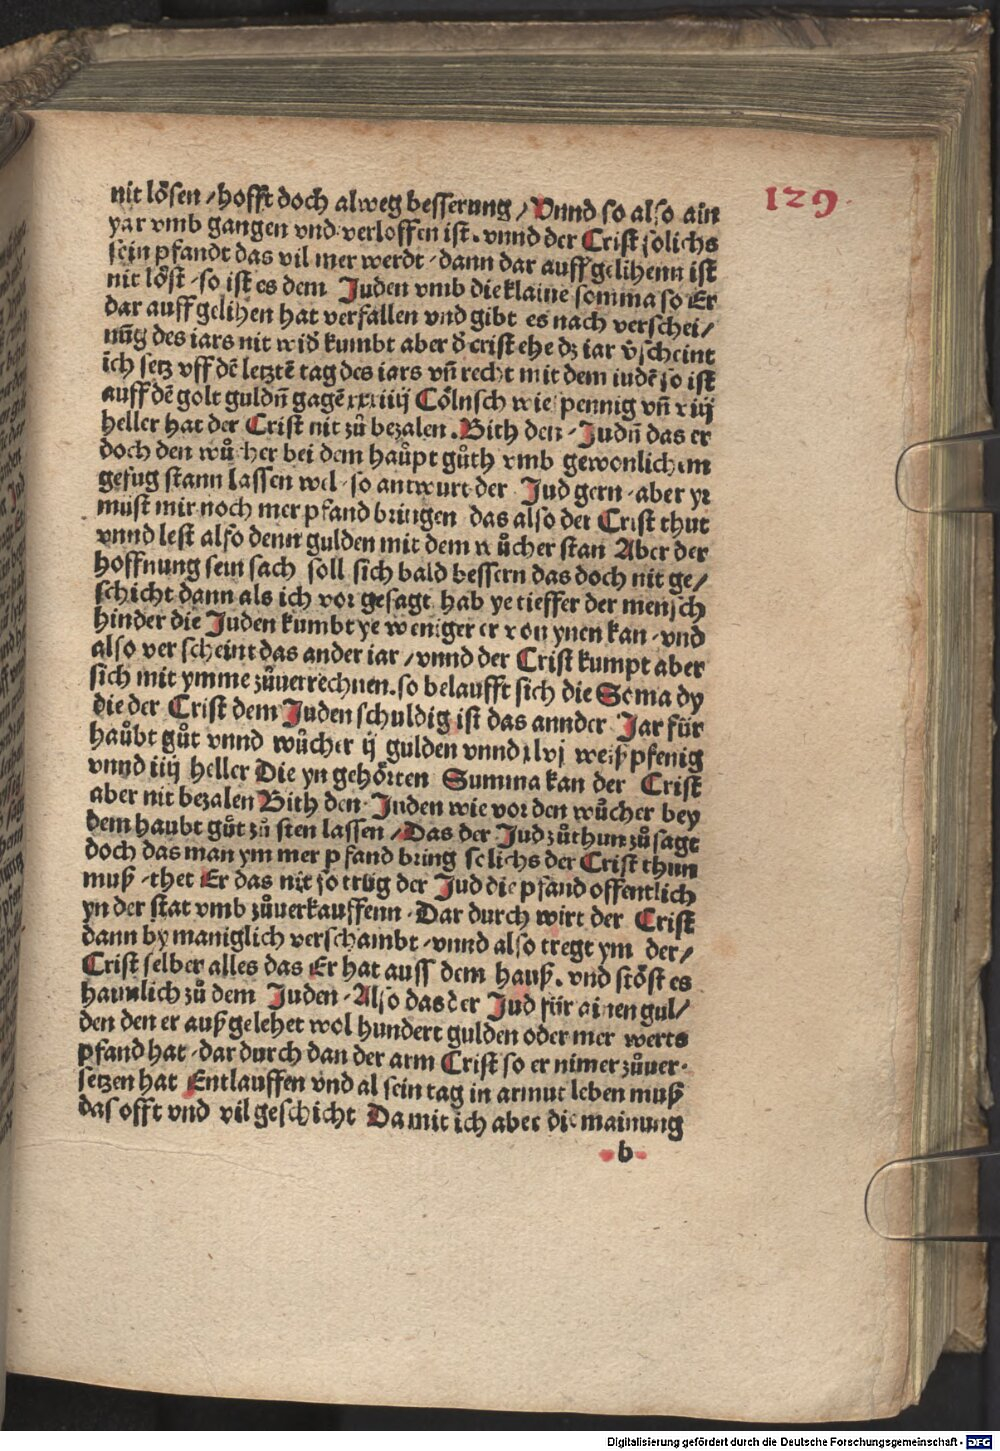 129
nit lösen / hofft doch alweg besserung / Vnnd so also ain
yar vmb gangen vnd verloffen ist. vnnd der Crist solichs
sein pfandt das vil mer werdt dann dar auff gelihenn ist
nit löst so ist es dem Juden vmb die klaine somma so Er
dar auff gelihen hat verfallen vnd gibt es nach verschei/
nūg des iars nit wid̄ kumbt aber d̄ crist ehe dz iar v̄scheint
ich setz vff dē letztē tag des iars vn̄ recht mit dem iudē so ist
auff dē golt guldn̄ gagē xxiiij Cölnsch wie pennig vn̄ xiij
heller hat der Crist nit zů bezalen. Bith den Judn̄ das er
doch den wůcher bei dem haůpt gůth vmb gewonlichem
gesug stann lassen wel so antwurt der Jud gern aber yr
müst mir noch mer pfand bringen das also der Crist thut
vnnd lest also denn gulden mit dem wůcher stan Aber der
hoffnung sein sach soll sich bald bessern das doch nit ge/
schicht dann als ich vor gesagt hab ye tieffer der mensch
hinder die Juden kumbt ye weniger er von ynen kan vnd
also verscheint das ander iar / vnnd der Crist kumpt aber
sich mit ymme zůuerrechnen. so belaufft sich die Soma dy
die der Crist dem Juden schuldig ist das annder Jar für
haůbt gůt vnnd wůcher ij gulden vnnd xlvj weiß pfenig
vnnd iiij heller Die yngehörten Summa kan der Crist
aber nit bezalen Bith den Juden wie vor den wůcher bey
dem haubt gůt zů sten lassen / Das der Jud zůthun zů sagt
doch das man ym mer pfand bring solichs der Crist thun
muß thet Er das nit so trüg der Jud die pfand offentlich
yn der stat vmb zůuerkauffenn Dar durch wirt der Crist
dann by maniglich verschambt vnnd also tregt ym der/
Crist selber alles das Er hat auss dem hauß. vnd stöst es
haimlich zů dem Juden Also das der Jud für ainen gul/
den den er auß gelehet wol hundert gulden oder mer werts
pfand hat dar durch dan der arm Crist so er nimer zůuer
setzen hat Entlauffen vnd al sein tag in armut leben muß
das offt vnd vil geschicht Damit ich aber die mainung
b
Digitalisierung gefördert durch die Deutsche Forschungsgemeinschaft - DFG